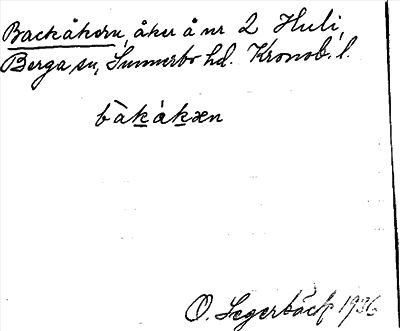 Backåkern, åker å nr 2 Huli,
Berga sn, Sunnerbo hd. Kronob. l.
bàkákæn
O. Segerbäck 1936